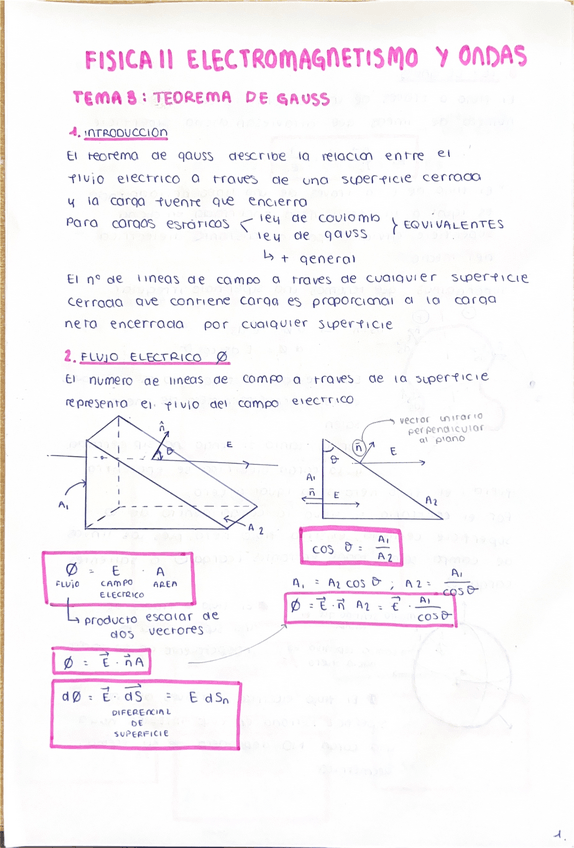 FISICA II ELECTROMAGNETISMO Y ONDAS
TEMA 3: TEOREMA DE GAUSS
1. INTRODUCCION
El teorema de gauss describe la relacion entre el
flujo electrico a traves de una superficie cerrada
y la carga fuente que encierra
Para cargas estáticas < ley de coulomb
ley de gauss } EQUIVALENTES
↳ + general
El nº de lineas de campo a traves de cualquier superficie
cerrada que contiene carga es proporcional a la carga
neta encerrada por cualquier superficie
2. FLUJO ELECTRICO Ø
El numero de lineas de campo a traves de la superficie
representa el flujo del campo electrico
n̂
θ
E
A₁
A₂
→ vector unitario
perpendicular
al plano
θ
n̄
E
A₁
n̄
E
A₂
cos θ = A₁/A₂
A₁ = A₂ cos θ ; A₂ = A₁/cos θ
Ø = E⃗ · n⃗ A₂ = E⃗ · A₁/cos θ
Ø = E · A
FLUJO CAMPO ELECTRICO AREA
↳ producto escalar de
dos vectores
Ø = E⃗ · n⃗ A
dØ = E⃗ · dS⃗ = E dSₙ
DIFERENCIAL
DE
SUPERFICIE
1.